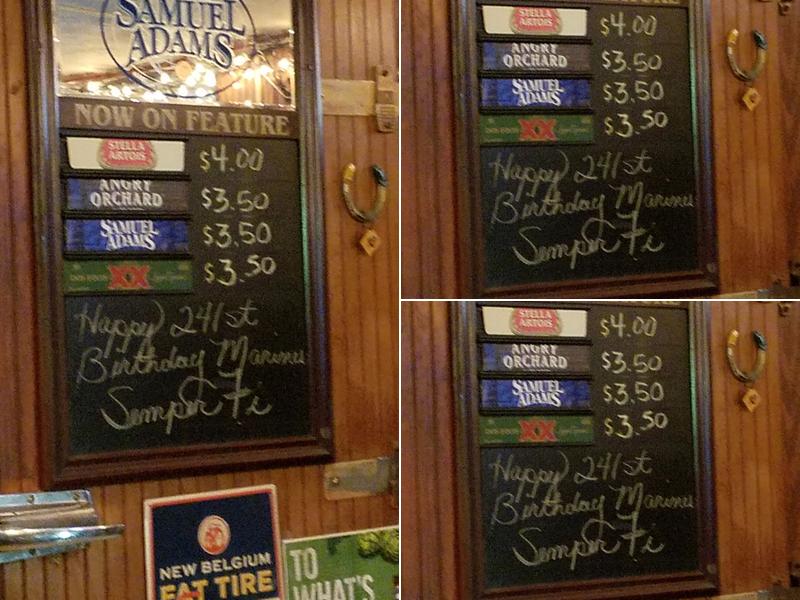 SAMUEL
ADAMS
NOW ON FEATURE
STELLA
ARTOIS
$4.00
ANGRY
ORCHARD
$3.50
SAMUEL
ADAMS
$3.50
XX
$3.50
Happy 241st
Birthday Marines
Semper Fi
NEW BELGIUM
FAT TIRE
TO
WHAT'S
STELLA
ARTOIS
$4.00
ANGRY
ORCHARD
$3.50
SAMUEL
ADAMS
$3.50
XX
$3.50
Happy 241st
Birthday Marines
Semper Fi
STELLA
ARTOIS
$4.00
ANGRY
ORCHARD
$3.50
SAMUEL
ADAMS
$3.50
XX
$3.50
Happy 241st
Birthday Marines
Semper Fi